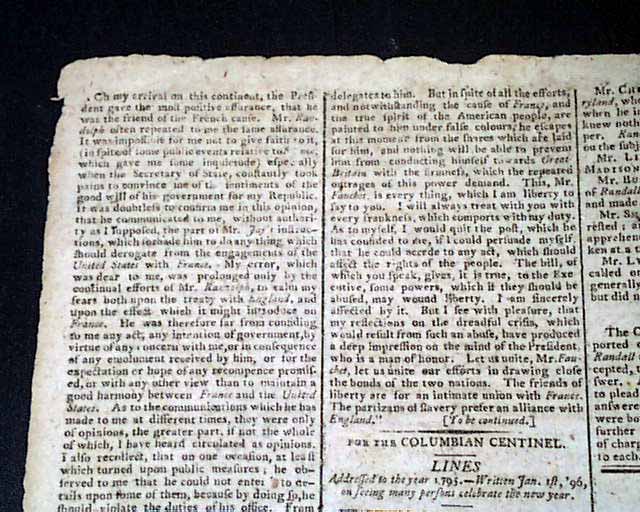 On my arrival on this continent, the Presi-
dent gave the most positive assurance, that he
was the friend of the French cause. Mr. Ran-
dolph often repeated to me the same assurance.
It was impossible for me not to give faith to it,
(in spite of some public events relative to
which gave me some inquietude) especially
when the Secretary of State, constantly took
pains to convince me of the sentiments of the
good will of his government for my Republic.
It was doubtless to confirm me in this opinion,
that he communicated to me, without authori-
ty as I supposed, the part of Mr. Jay's instruc-
tions, which forbade him to do any thing which
should derogate from the engagements of the
United States with France. My error, which
was dear to me, was prolonged only by the
continual efforts of Mr. Randolph, to calm my
fears both upon the treaty with England, and
upon the effect which it might introduce on
France. He was therefore far from confiding
to me any act, any intention of government, by
virtue of any concern with me, or in consequence
of any emolument received by him, or for the
expectation or hope of any recompence promis-
ed, or with any other view than to maintain a
good harmony between France and the United
States. As to the communications which he has
made to me at different times, they were only
of opinions, the greater part, if not the whole
of which, I have heard circulated as opinions.
I also recollect, that on one occasion, at least
which turned upon public measures, he ob-
served to me that he could not enter to de-
tails upon some of them, because by doing so, he
should violate the duties of his office. From
delegates to him. But in spite of all the efforts,
and notwithstanding the cause of France, and
the true spirit of the American people, are
painted to him under false colours, he escapes
at this moment from the snares which are laid
for him, and nothing will be able to prevent
him from conducting himself towards Great-
Britain with the firmness, which the repeated
outrages of this power demand. This, Mr.
Fauchet, is every thing, which I am liberty to
say to you. I will always treat you with with
every frankness, which comports with my duty.
As to myself, I would quit the post, which he
has confided to me, if I could persuade myself,
that he could accede to any act, which should
affect the rights of the people. The bill, of
which you speak, gives, it is true, to the Exe-
cutive, some powers, which if they should be
abused, may wound liberty. I am sincerely
affected by it. But I see with pleasure, that
my reflections on the dreadful crisis, which
would result from such an abuse, have produced
a deep impression on the mind of the President,
who is a man of honor. Let us unite, Mr. Fau-
chet, let us unite our efforts in drawing close
the bonds of the two nations. The friends of
liberty are for an intimate union with France.
The partizans of slavery prefer an alliance with
England."
[To be continued.]
FOR THE COLUMBIAN CENTINEL.
LINES
Addressed to the year 1795.—Written Jan. 1st, '96,
on seeing many persons celebrate the new year.
Mr.
ryland, wh
when he i
knew noth
per.
on the subj
Mr. L
MADISON
Mr.
of Randal
and made
Mr. S
rested; a
apprehen
ken at a
Mr. L
called
generally
but did
The C
ported
Randall
cepted, t
swer.
to plead
answere
were bo
further
of ch
to each.